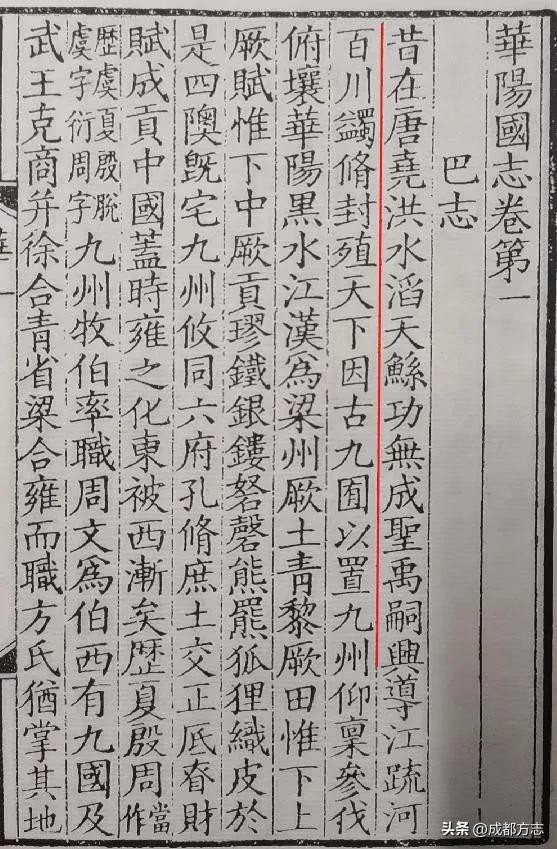 華陽國志卷第一
巴志
昔在唐堯洪水滔天鯀功無成聖禹嗣興導江疏河
百川蠲脩封殖天下因古九囿以置九州仰稟參伐
俯壤華陽黑水江漢爲梁州厥土青黎厥田惟下上
厥賦惟下中厥貢璆鐵銀鏤砮磬熊羆狐狸織皮於
是四隩旣宅九州攸同六府孔脩庶土交正厎眘財
賦成貢中國蓋時雍之化東被西漸矣歷夏殷周當作
歷虞夏殷脫虞字衍周字九州牧伯率職周文爲伯西有九國及
武王克商并徐合青省梁合雍而職方氏猶掌其地
头条 @成都方志